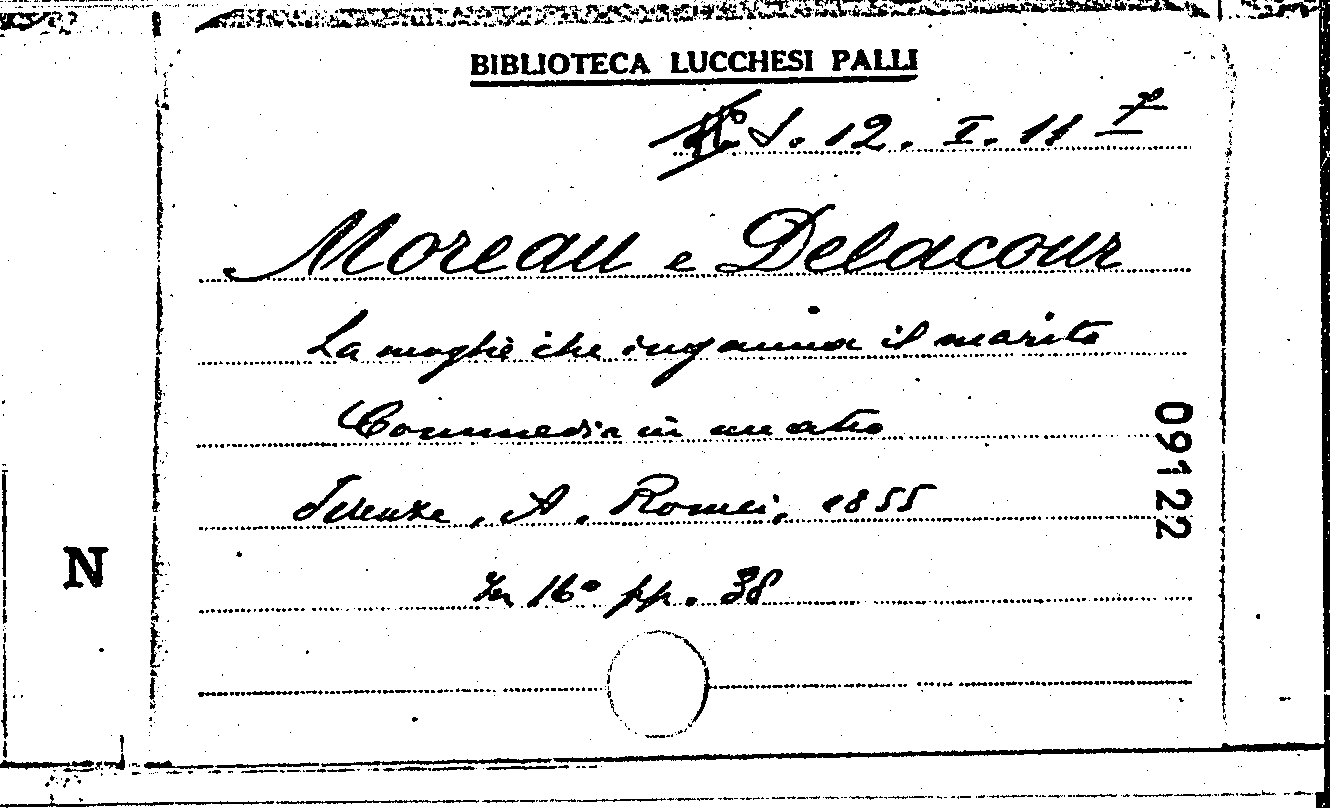 BIBLIOTECA LUCCHESI PALLI
S. 12. I. 11 7
Moreau e Delacour
La moglie che inganna il marito
Commedia in un atto
Firenze, A. Romei, 1855
In 16° pp. 38
09122
N